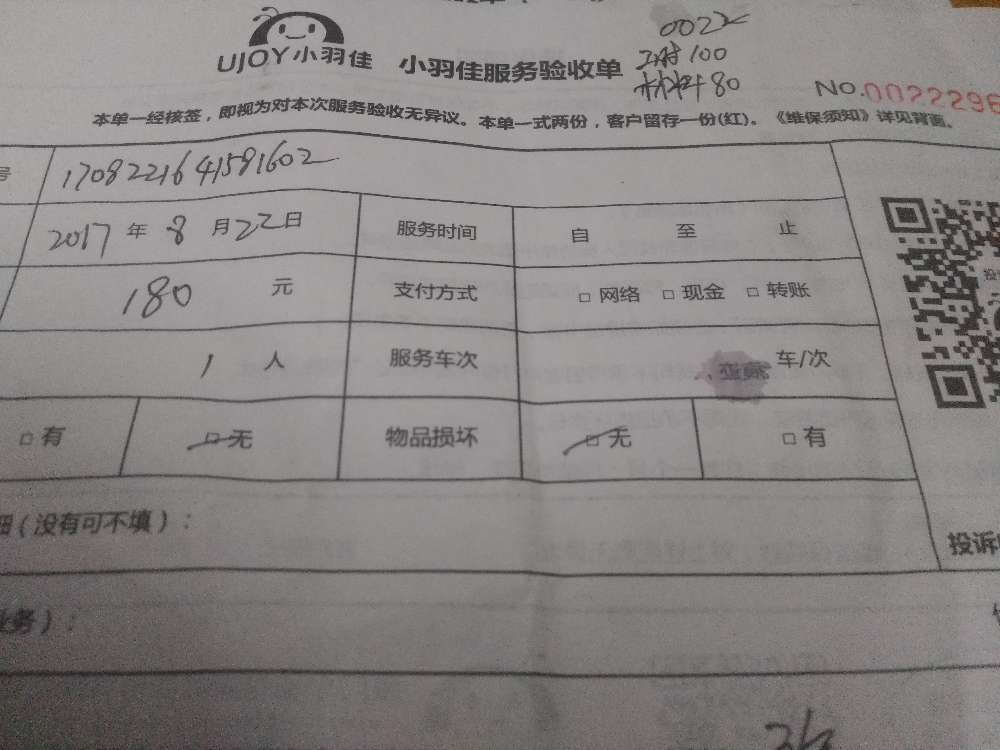 0022
UJOY小羽佳 小羽佳服务验收单
工时100
材料80
No.0022296
本单一经核签，即视为对本次服务验收无异议。本单一式两份，客户留存一份(红)。《维保须知》详见背面。
号 1708221641581602
2017 年 8 月 22 日 服务时间 自 至 止
180 元 支付方式 □ 网络 □ 现金 □ 转账
1 人 服务车次 车/次
□ 有 □ 无 物品损坏 □ 无 □ 有
细（没有可不填）：
投诉
业务）：